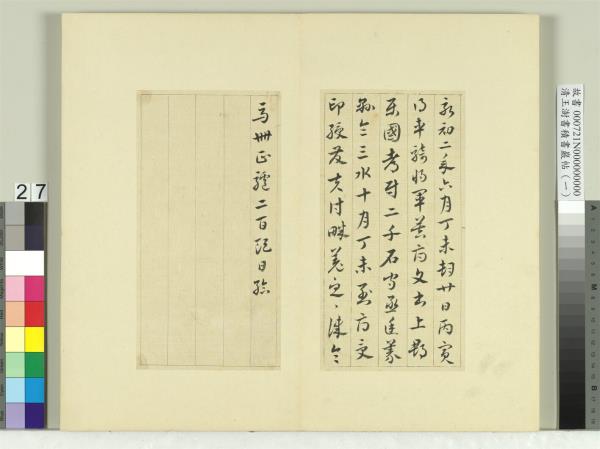 永初二年六月丁未朔廿日丙寅
得車騎將軍莫府文書上郡
屬國都尉二千石守丞廷義
縣令三水十月丁未到府受
印綬發夫討畔羌急、律令
馬卌匹驢二百頭日給
故書 000721N000000000
清王澍書積書巖帖（一）
27